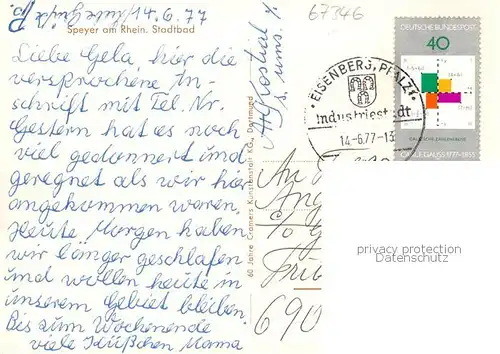 14.6.77
67346
Speyer am Rhein. Stadtbad
Liebe Gela, hier die
versprochene An-
schrift mit Tel. Nr.
Gestern hat es noch
viel gedonnert und
geregnet als wir hier
angekommen waren.
Heute Morgen haben
wir länger geschlafen
und wollen heute in
unserem Gebiet bleiben.
Bis zum Wochenende
viele Küßchen Mama
60 Jahre Cramers Kunstanstalt KG., Dortmund
s. ums.
DEUTSCHE BUNDESPOST
40
GAUSSSCHE ZAHLENEBENE
CARL F. GAUSS 1777-1855
EISENBERG, PFALZ
Industriestadt
14.-6.77-13
An
c/o
690
privacy protection
Datenschutz